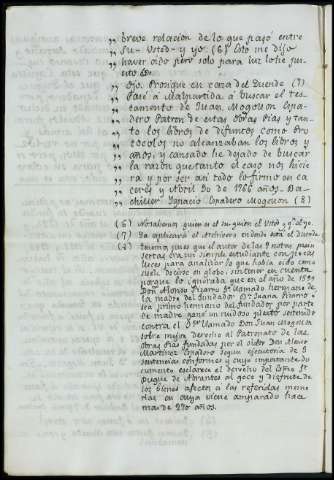 ,, breve relacion de lo que pasó entre
,, Su- Usted- y yo (6) Esto me dijo
,, haver oido pero solo para luz lo he pu-
,, esto &a.
,, Ojo. Prosigue en casa del Duende (7)
,, Pasé a Malpartida à buscar el tes-
,, tamento de Juan Mogollon Espa-
,, dero Patron de estas obras Pias y tan-
,, to los libros de difuntos como Pro-
,, tocolos no alcanzaban los libros y
,, años, y cansado he dejado de buscar
,, la razon que tanto el caso nos hicie-
,, ra y por ser asi todo lo firmo en Ca-
,, ceres y Abril 30 de 1766 años. Ba-
,, chiller Ignacio Espadero Mogollon (8)
(6) Notabenum quien es el su quien el Usted, y el yo.
(7) Se aplicará al Archivero en donde está el duende
(8) buenos pues que el autor de las 8 notas pues
puertas era un simple estudiante, con pocas
luces para analizar lo que habia sido como
suele decirse en globo, sin tener en cuenta
porque lo ignoraba que en el año de 1590
Don Alonso Pizarro Sr. llamado hermano de
la madre del fundador Dª. Juana Pizarro i
sea primo hermano del fundador por parte
de madre ganó un ruidoso pleito sentenció
contra el Sr. llamado Don Juan Mogollon
sobre mejor derecho al Patronato de las
obras Pias fundadas por el dicho Don Alvaro
Martinez Espadero segun egecutoria de 3
sentencias conformes y cuyo importante do-
cumento esclarece el derecho del Escmo. Sr.
Duque de Abrantes al goce y disfrute de
los bienes afectos a las referidas memo-
rias en cuya viene amparado hace
mas de 270 años.